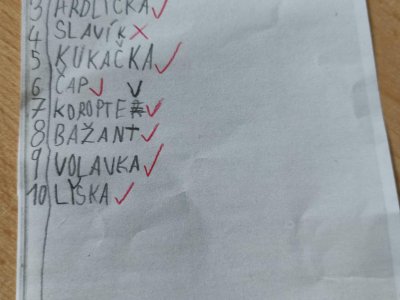 3 HRDLIČKA
4 SLAVÍK
5 KUKAČKA
6 ČAP
7 KOROPTEV
8 BAŽANT
9 VOLAVKA
10 LYSKA